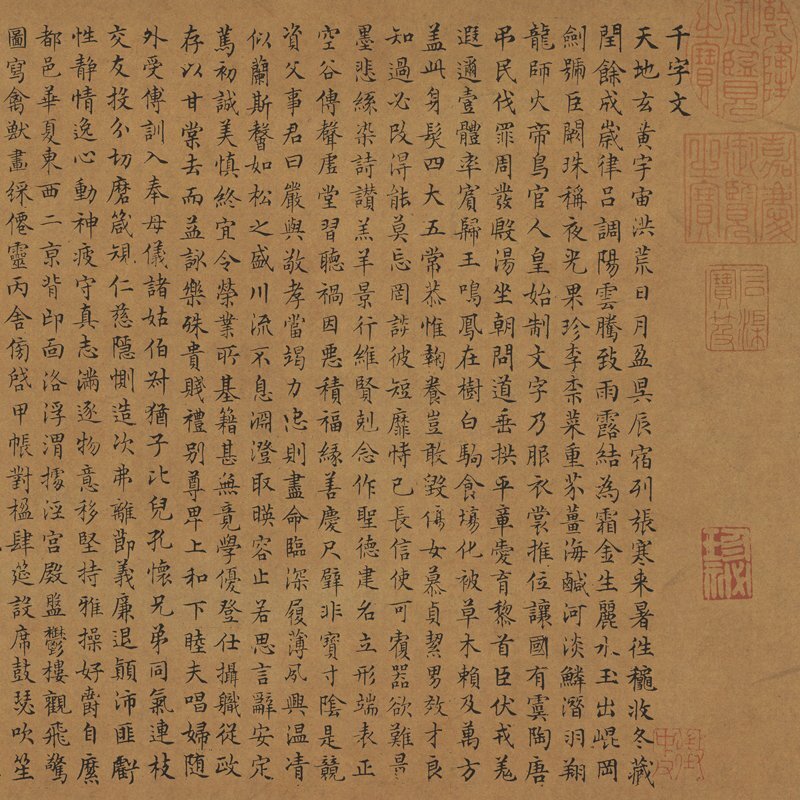 乾隆御覽之寶
嘉慶御覽之寶
石渠寶笈
珍秘
千字文
天地玄黃宇宙洪荒日月盈昃辰宿列張寒来暑往穐收冬藏
閏餘成歲律呂調陽雲騰致雨露結為霜金生麗水玉出崐岡
劍號巨闕珠稱夜光果珍李柰菜重芥薑海鹹河淡鱗潛羽翔
龍師火帝鳥官人皇始制文字乃服衣裳推位讓國有虞陶唐
弔民伐罪周發殷湯坐朝問道垂拱平章愛育黎首臣伏戎羌
遐邇壹體率賓歸王鳴鳳在樹白駒食場化被草木賴及萬方
蓋此身髮四大五常恭惟鞠養豈敢毀傷女慕貞絜男效才良
知過必改得能莫忘罔談彼短靡恃己長信使可覆器欲難量
墨悲絲染詩讚羔羊景行維賢剋念作聖德建名立形端表正
空谷傳聲虛堂習聽禍因惡積福緣善慶尺璧非寶寸陰是競
資父事君曰嚴與敬孝當竭力忠則盡命臨深履薄夙興温凊
似蘭斯馨如松之盛川流不息淵澄取暎容止若思言辭安定
篤初誠美慎終宜令榮業所基籍甚無竟學優登仕攝職從政
存以甘棠去而益詠樂殊貴賤禮別尊卑上和下睦夫唱婦随
外受傅訓入奉母儀諸姑伯叔猶子比兒孔懷兄弟同氣連枝
交友投分切磨箴規仁慈隱惻造次弗離節義廉退顛沛匪虧
性静情逸心動神疲守真志滿逐物意移堅持雅操好爵自縻
都邑華夏東西二京背邙面洛浮渭據涇宮殿盤鬱樓觀飛驚
圖寫禽獸畫綵僊靈丙舍傍啓甲帳對楹肆筵設席鼓瑟吹笙